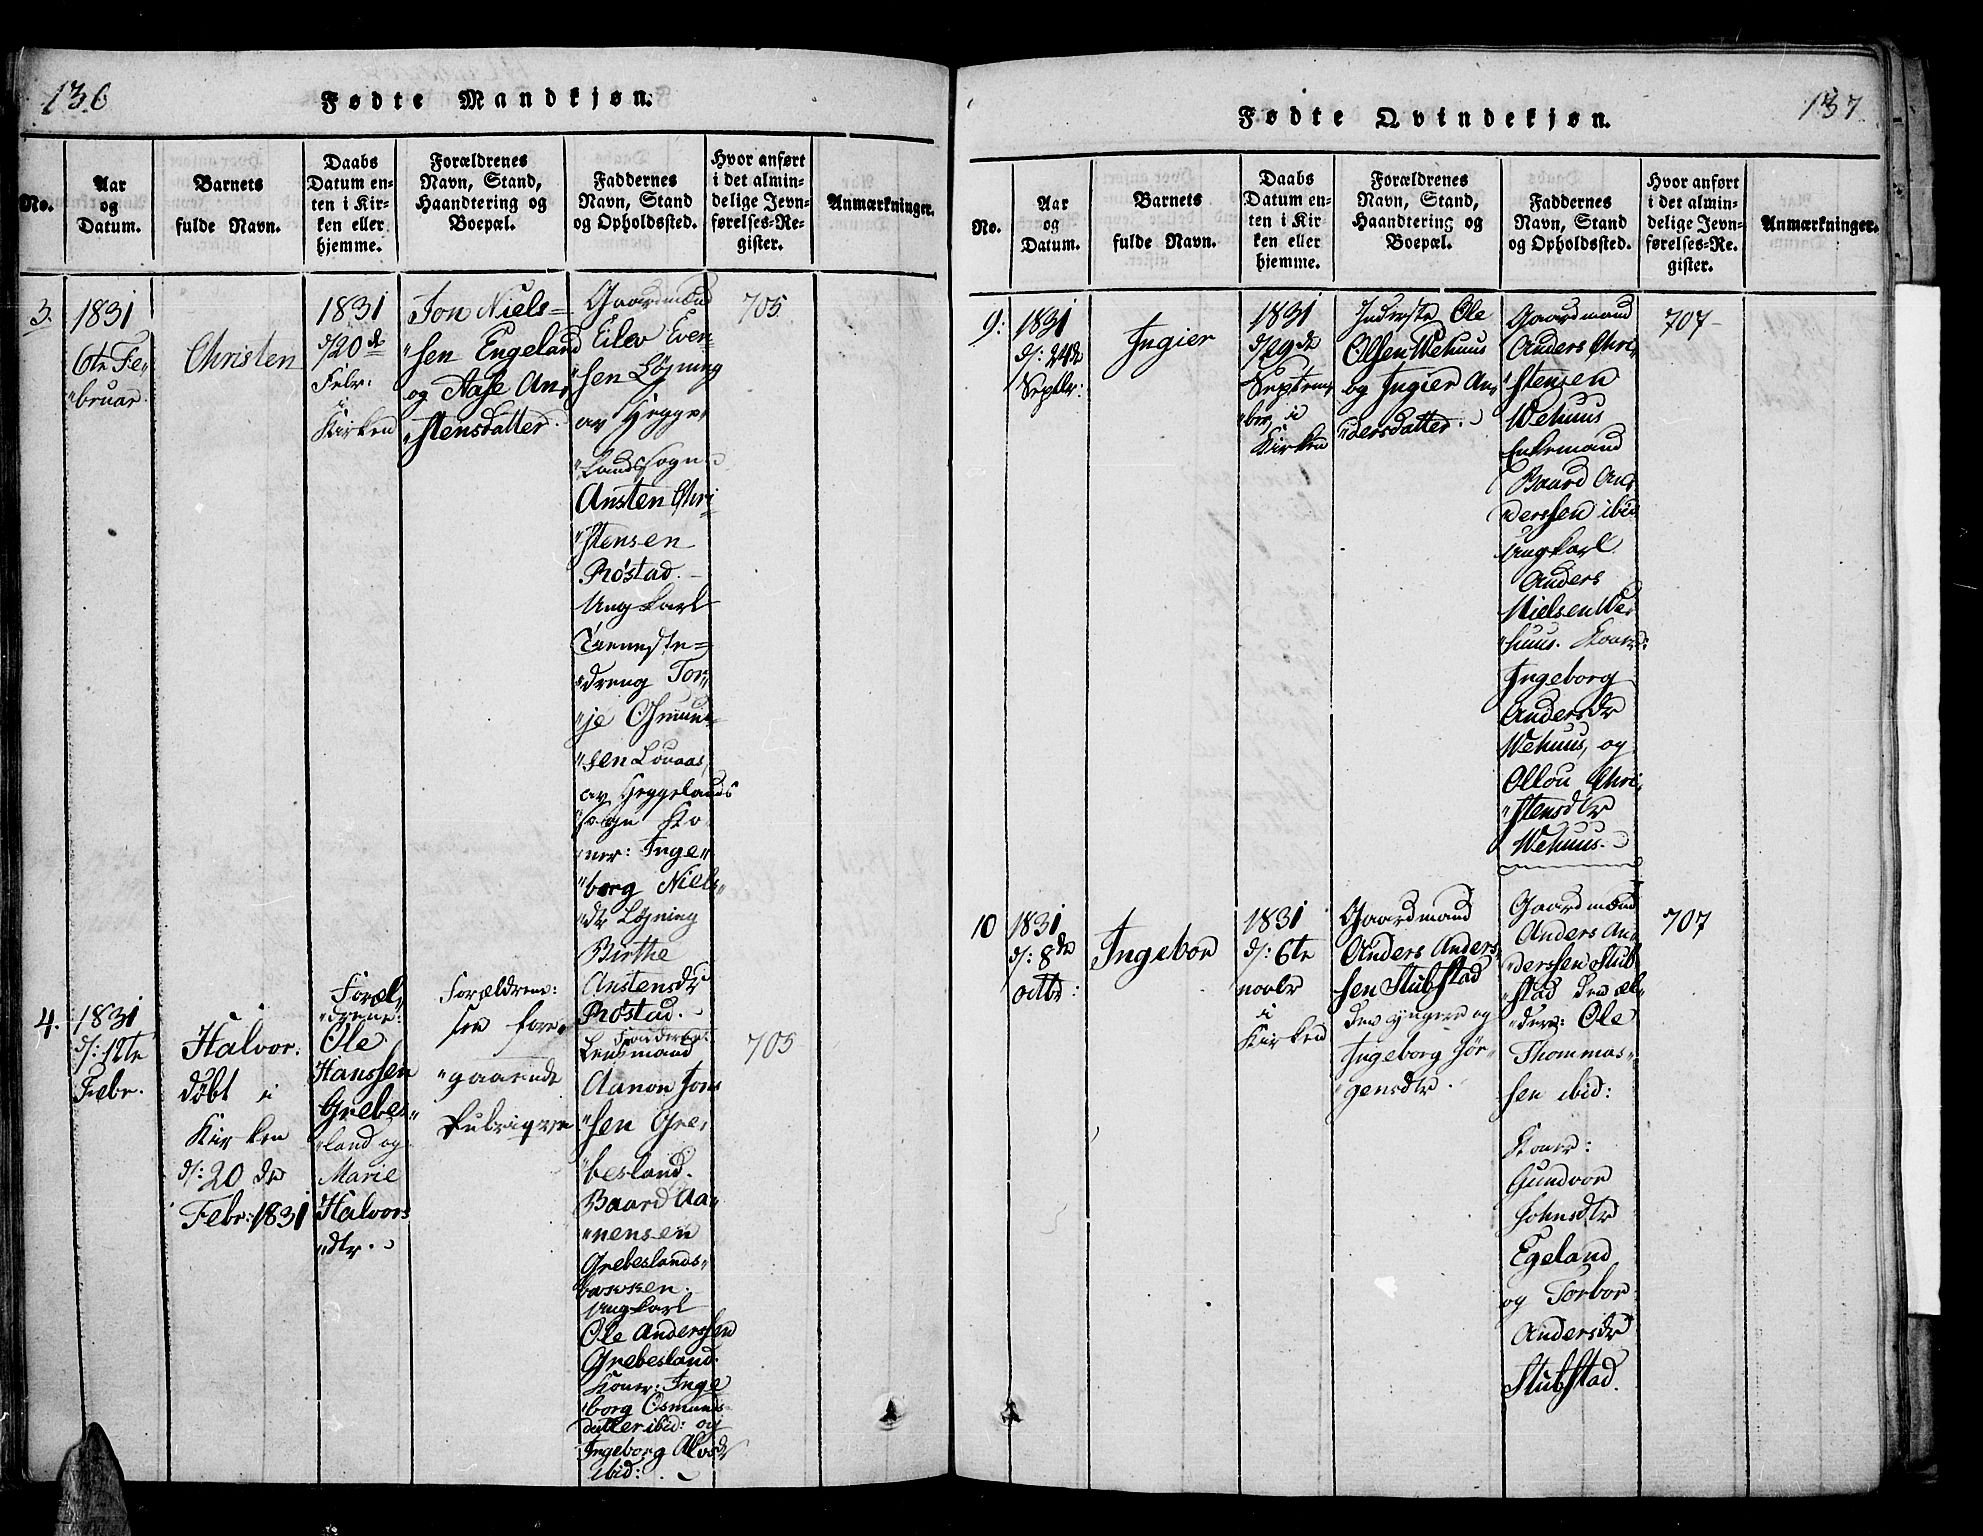 136
Fødte Mandkjøn.
No.
Aar
og
Datum.
Barnets
fulde Navn.
Daabs
Datum en-
ten i Kir-
ken eller
hjemme.
Forældrenes
Navn, Stand,
Haandtering og
Boepæl.
Faddernes
Navn, Stand
og Opholdssted.
Hvor anført
i det almin-
delige Jevn-
førelses-Re-
gister.
Anmærkninger.
3.
1831
6te Fe-
"bruar.
Christen
1831
d/20de
Febr:
i
Kirken
Jon Niels=
"sen Engeland
og Aase An-
"stensdatter.
Gaardmænd
Eilev Even-
"sen Løgning
av Hegge-
"landssogn
Ansten Chri-
"stensen
Røstad.
Ungkarl
Tienneste=
"dreng Tor-
"je Osmun-
"sen Lovaas,
av Heggelands
sogn Ko-
"ner: Inge-
"borg Niels-
"dr Løgning
Birthe
Anstensdr
Røstad.
705
4.
1831
d/: 12te
Febr.
Halvor.
døbt i
Kirken
d/: 20de
Febr: 1831
Foræl-
"drene:
Ole
Hanssen
Grebes-
"land og
Marie
Halvors
"dtr.
Forældrene:
see fore-
"gaaende
Rubriqven
Faddere:
Lensmand
Aanon Jons
"sen Gre-
"besland.
Baard Aa-
"nensen
Grebeslands-
bakken.
Ungkarl
Ole Anderssen
Grebesland.
Koner: Inge
"borg Osmunds-
datter ibid: og
Ingeborg Alvsdr
ibid:
705
137
Fødte Qvindekjøn.
No.
Aar
og
Datum.
Barnets
fulde Navn.
Daabs
Datum en-
ten i Kir-
ken eller
hjemme.
Forældrenes
Navn, Stand,
Haandtering og
Boepæl.
Faddernes
Navn, Stand
og Opholdssted.
Hvor anført
i det almin-
delige Jevn-
førelses-Re-
gister.
Anmærkninger.
9:
1831
d/: 24de
Septbr:
Ingier
1831
d/29de
Septem-
"ber i
Kirken
Inderste Ole
Olsen Wehuus
og Ingier An-
"dersdatter.
Gaardmand
Anders Chri-
"stensen
Wehuus
Enkemand
Baard An-
"derssen ibid
Ungkarl
Anders
Nielsen We-
"huus. Koner:
Ingeborg
Andersdr
Wehuus, og
Ollou Chri-
"stensdtr
Wehuus.
707
10
1831
d/: 8de
Octbr:
Ingebor
1831
d/: 6te
novbr
i
Kirken
Gaardmand
Anders Anders
sen Stubstad
den yngere og
Ingeborg Jør-
"gensdtr.
Gaardmænd
Anders An-
"derssen Stub
"stad den æl-
"dere: Ole
Thommas-
sen ibid:
Koner:
Gundvor
Johnsdtr
Egeland
og Torbor
Andersdr
Stubstad.
707